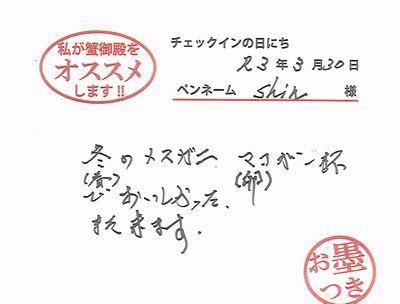 私が蟹御殿を
オススメ
します!!
チェックインの日にち
R3年3月30日
ペンネーム shin 様
冬のメスガニ マコガ一杯
(卵)
でおいしかった。
また来ます。
お墨
つき